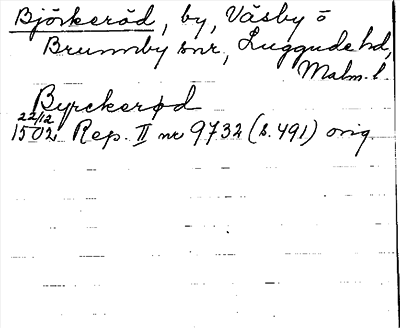 Björkeröd, by, Väsby o
Brunnby snr, Luggude hd,
Malm. l.
Byrckerød
22/12
1502 Rep. II nr 9732 (s. 491) orig.